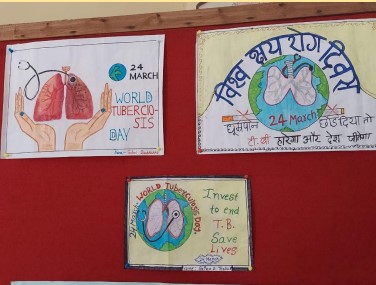 24
MARCH
WORLD
TUBERCLO-
SIS
DAY
विश्व क्षय रोग दिवस
24 March
धूम्रपान छोड़ दिया तो
टी.बी हारेगा और देश जीतेगा
24 March WORLD TUBERCULOSIS DAY
Invest
to end
T.B.
Save
Lives